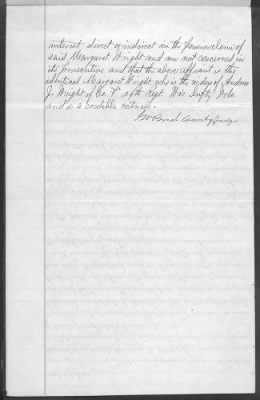 interest, direct or indirect in the Pension claim of
said Margaret Wright and am not concerned in
its prosecution and that the above affiant is the
identical Margaret Wright who is the widow of Andrew
J. Wright of Co. F Regt Wis Infty Vols
and is a credible witness.
County Judge